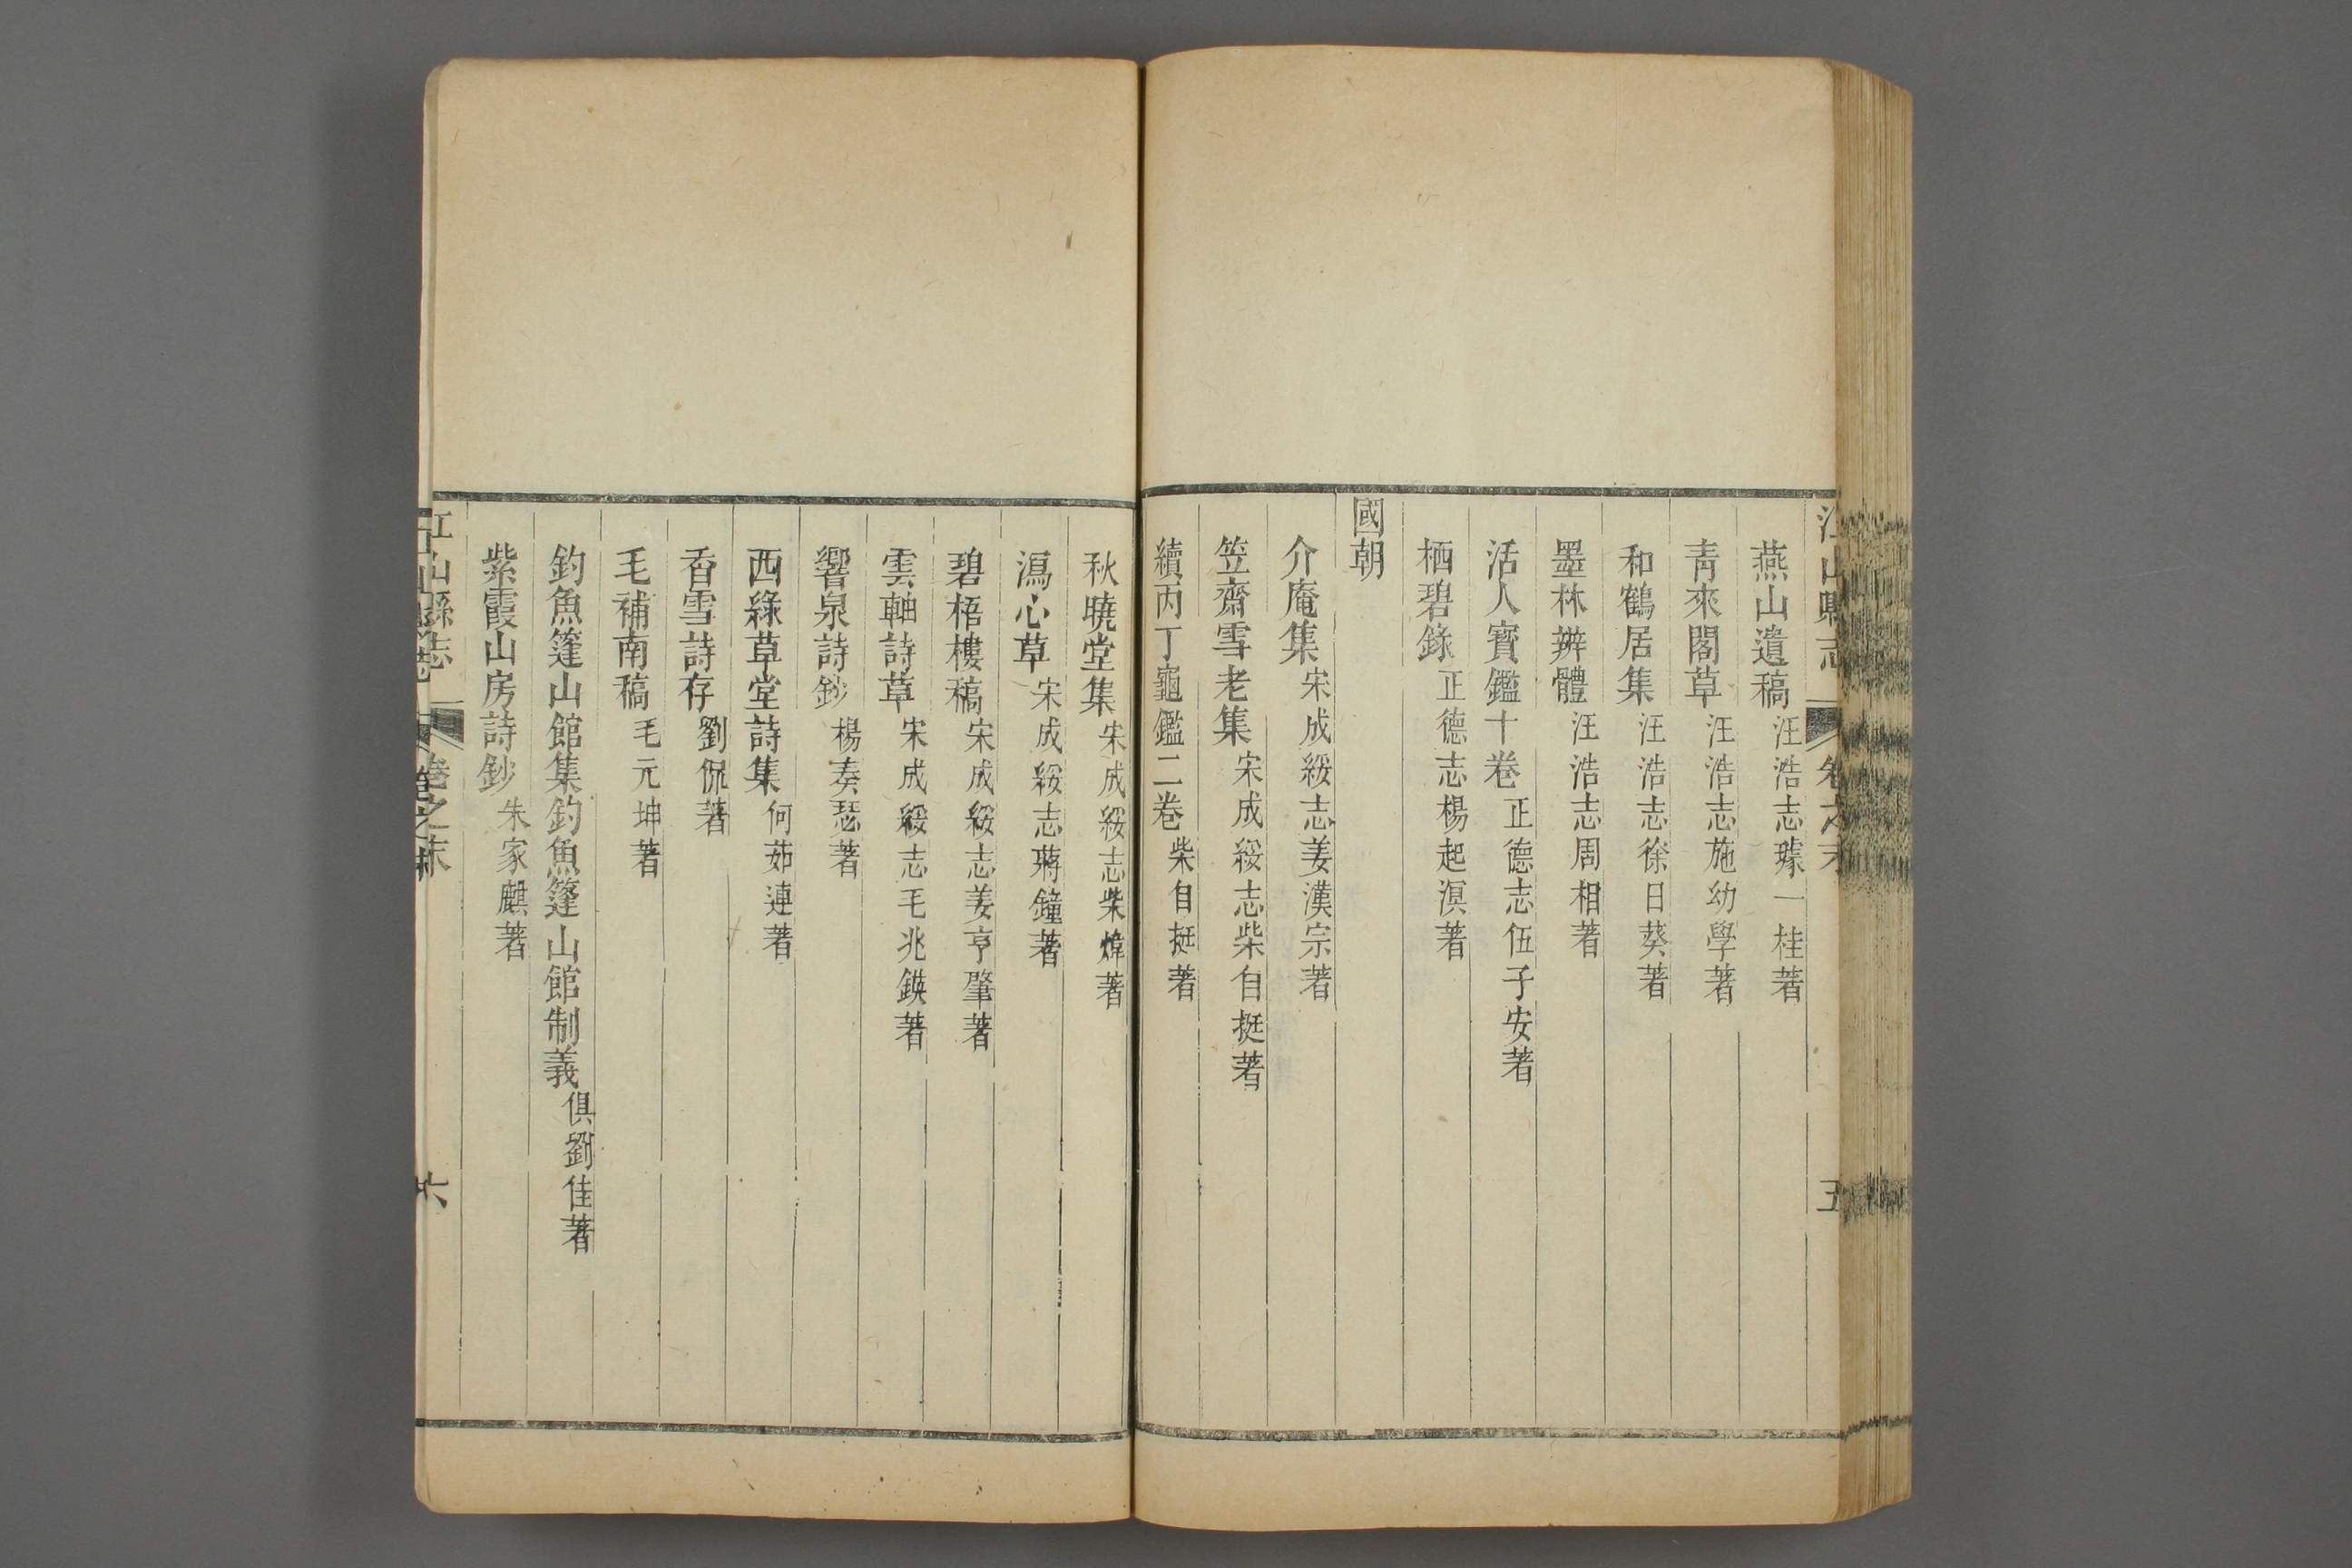 江山縣志 卷之末 五
燕山遺稿汪浩志璩一桂著
靑來閣草汪浩志施幼學著
和鶴居集汪浩志徐日葵著
墨林辨體汪浩志周相著
活人寳鑑十卷正德志伍子安著
栖碧錄正德志楊起溟著
國朝
介庵集宋成綏志姜漢宗著
笠齋雪老集宋成綏志柴自挺著
續丙丁龜鑑二卷柴自挺著
秋曉堂集宋成綏志柴煒著
瀉心草宋成綏志蔣鐘著
碧梧樓稿宋成綏志姜亨肇著
雲軸詩草宋成綏志毛兆鍈著
響泉詩鈔楊奏瑟著
西綠草堂詩集何茹連著
香雪詩存劉侃著
毛補南稿毛元坤著
釣魚篷山館集釣魚篷山館制義俱劉佳著
紫霞山房詩鈔朱家麒著
江山縣志 卷之末 六